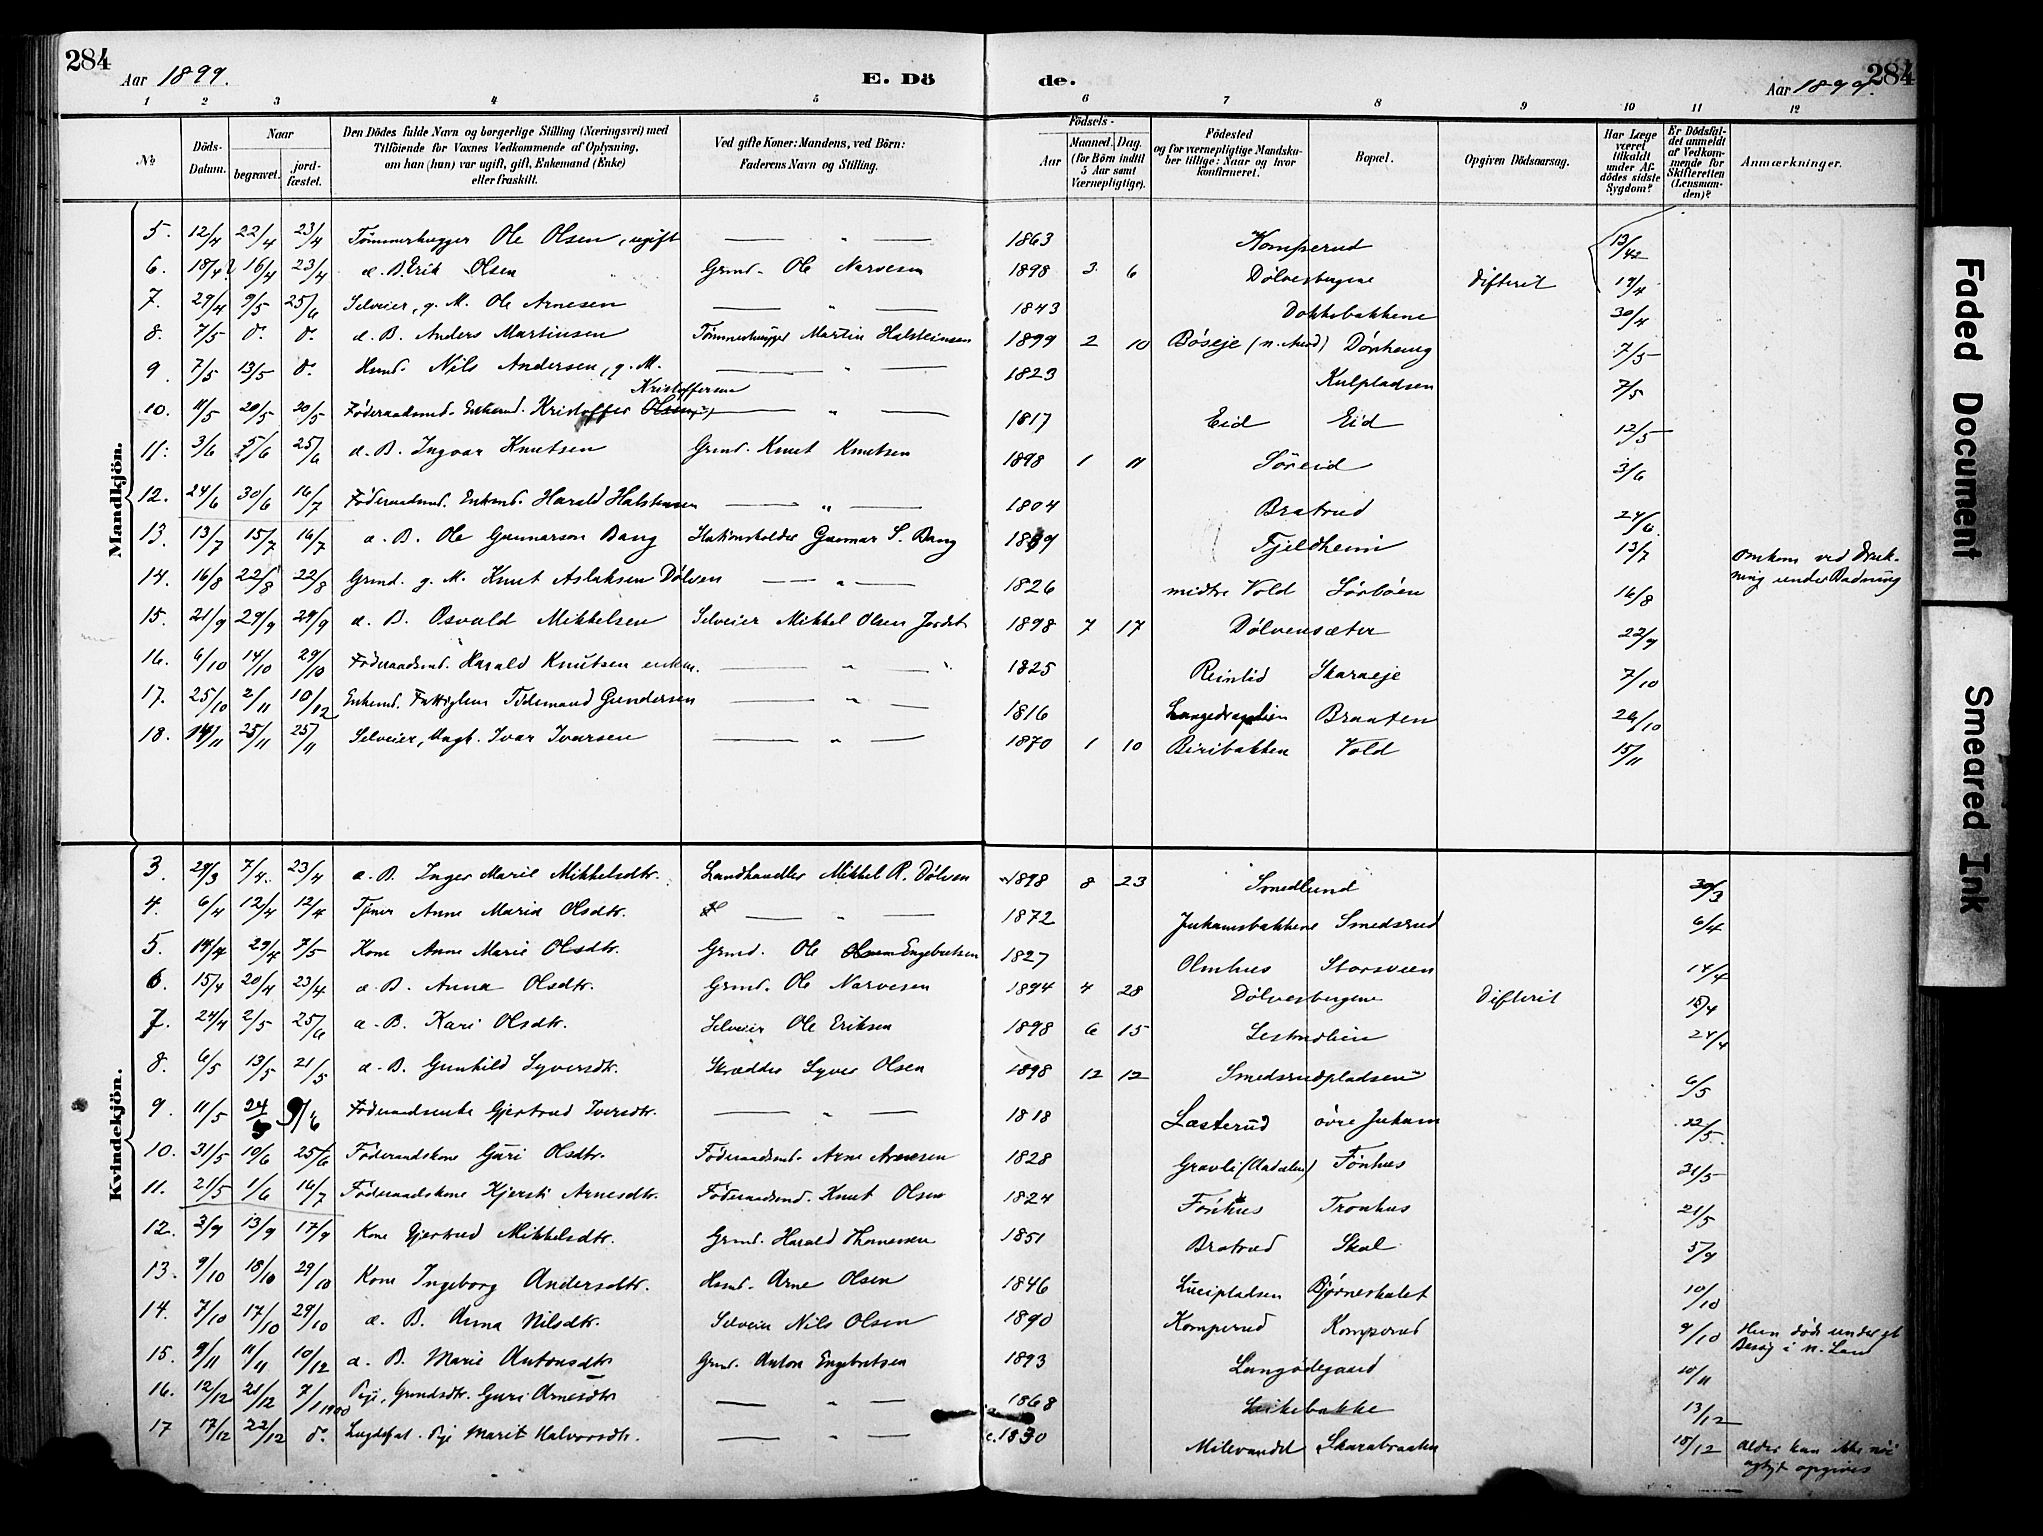 284
Aar 1899.
E. Dö
de.
Aar 1899.
284
1 2 3 4 5 6 7 8 9 10 11 12
№
Döds-Datum.
Naar
begravet.
jord-fæstet.
Den Dödes fulde Navn og borgerlige Stilling (Næringsvei) med
Tilföiende for Voxnes Vedkommende af Oplysning,
om han (hun) var ugift, gift, Enkemand (Enke)
eller fraskilt.
Ved gifte Koner: Mandens, ved Börn:
Faderens Navn og Stilling.
Födsels-
Aar
Maaned. Dag.
(for Börn indtil
5 Aar samt
Værnepligtige).
Födested
og for værnepligtige Mandska-
ber tillige: Naar og hvor
konfirmeret.
Bopæl.
Opgiven Dödsaarsag.
Har Læge
været
tilkaldt
under Af-
dödes sidste
Sygdom?
Er Dödsfal-
det anmeldt
af Vedkom-
mende for
Skifteretten
(Lensman-
den)?
Anmærkninger.
Mandkjön.
5. 12/4 22/4 23/4 Tømmerhugger Ole Olsen, ugift — " — 1863 Komperud
6. 18/4 16/4 23/4 a. B. Erik Olsen Grmd. Ole Narvesen 1898 3 6 Dølvesbergene Difterit 19/4
7. 29/4 9/5 25/6 Selveier, g. M. Ole Arnesen — " — 1843 Dokkebakkene 30/4
8. 7/5 d. d. a. B. Anders Martinsen Tømmerhugger Martin Halsteinsen 1899 2 10 Bøseje (n. Aurd) Dønhaug 7/5
9 7/5 13/5 d. Husmd. Nils Andersen, g. M. — " — 1823 Kulpladsen 7/5
Kristoffersen
10. 11/5 20/5 20/5 Föderaadsmd. Enkemd. Kristoffer Olsen — " — 1817 Eid Eid 12/5
11. 3/6 5/6 25/6 a. B. Ingvar Knutsen Grmd. Knut Knutsen 1898 1 11 Søreid 3/6
12. 24/6 30/6 16/7 Föderaadsmd. Enkmd. Harald Halstensen — " — 1804 Bratrud 24/6
13. 13/7 15/7 16/7 a. B. Ole Gunnarson Bang Stationsholder Gunnar S. Bang 1889 Fjeldheim 13/7 Omkom ved Druk-
ning under Badning
14. 16/8 22/8 22/8 Grmd. g. M. Knut Aslaksen Dølven — " — 1826 midtre Vold Sørbøen 16/8
15. 21/9 29/9 29/9 a. B. Osvald Mikkelsen Selveier Mikkel Olsen Jordet 1898 7 17 Dølvensæter 22/9
16. 6/10 14/10 29/10 Föderaadsmd. Harald Knutsen enkem. — " — 1825 Reinlid Skaraeje 7/10
17. 25/10 2/11 10/12 Enkemd. Fattiglem Tidemand Gundersen — " — 1816 Langedragelien Braaten 26/10
18. 14/11 25/11 25/11 Selveier, Ungk. Ivar Iversen — " — 1870 1 10 Biribakken Vold 15/11
Kvindekjön.
3. 29/3 7/4. 23/4 a. B. Inger Marie Mikkelsdtr. Landhandler Mikkel R. Dølven 1898 8 23 Smedlund 30/3
4. 6/4 12/4 12/4 Tjener Anne Maria Olsdtr. — " — 1872 Juhamsbakkene Smedsrud 6/4
5. 14/4 29/4 7/5 Kone Anne Marie Olsdtr. Grmd. Ole Olsen Engebretsen 1827 Olmhus Storsveen 14/4
6. 15/4 20/4 23/4 a. B. Anna Olsdtr. Grmd. Ole Narvesen 1894 4 28 Dølvesbergene Difterit 15/4
7. 24/4 2/5 25/6 a. B. Kari Olsdtr. Selveier Ole Eriksen 1898 6 15 Lestrudlien 24/4
8. 6/5 13/5 21/5 a. B. Gunhild Syversdtr. Skrædder Syver Olsen 1898 12 12 Smedsrudpladsen 6/5
9. 11/5 24/5 9/6 Föderaadsenke Gjertrud Iversdtr. — " — 1818 Læsterud øvre Juham 12/5.
10. 31/5 10/6 25/6 Föderaadskone Guri Olsdtr. Föderaadsmd. Arne Arnesen 1828 Gravli (Aadalen) Fønhus 31/5
11. 21/5 1/6 16/7 Föderaadskone Kjersti Arnesdtr. Föderaadsmd. Knut Olsen 1824 Fønhus Tronhus 21/5
12. 3/9 13/9 17/9 Kone Gjertrud Mikkelsdtr. Grmd. Harald Thomesen 1851 Bratrud Skol 5/9
13. 9/10 18/10 29/10 Kone Ingeborg Andersdtr. Husmd. Arne Olsen 1846 Lucipladsen Bjørneskalet 10/10
14. 7/10 17/10 29/10 a. B. Anna Nilsdtr. Selveier Nils Olsen 1890 Komperud Komperud 9/10 Hun døde under et
Besøg i N. Land
15. 9/11 11/11 10/12 a. B. Marie Antonsdtr Grmd. Anton Engebretsen 1893 Langødegaard 10/11
16. 12/12 21/12 7/1 1900 Pige, Grmdsdtr. Guri Arnesdtr — " — 1868 Leikebakke 13/12
17 17/12 22/12 d. Lægdsfat. Pige Marit Halvorsdtr. — " — c. 1830 Milevandet Skarabraaten 18/12 Alder kan ikke nøi-
agtigt opgives
Faded Document
Smeared Ink